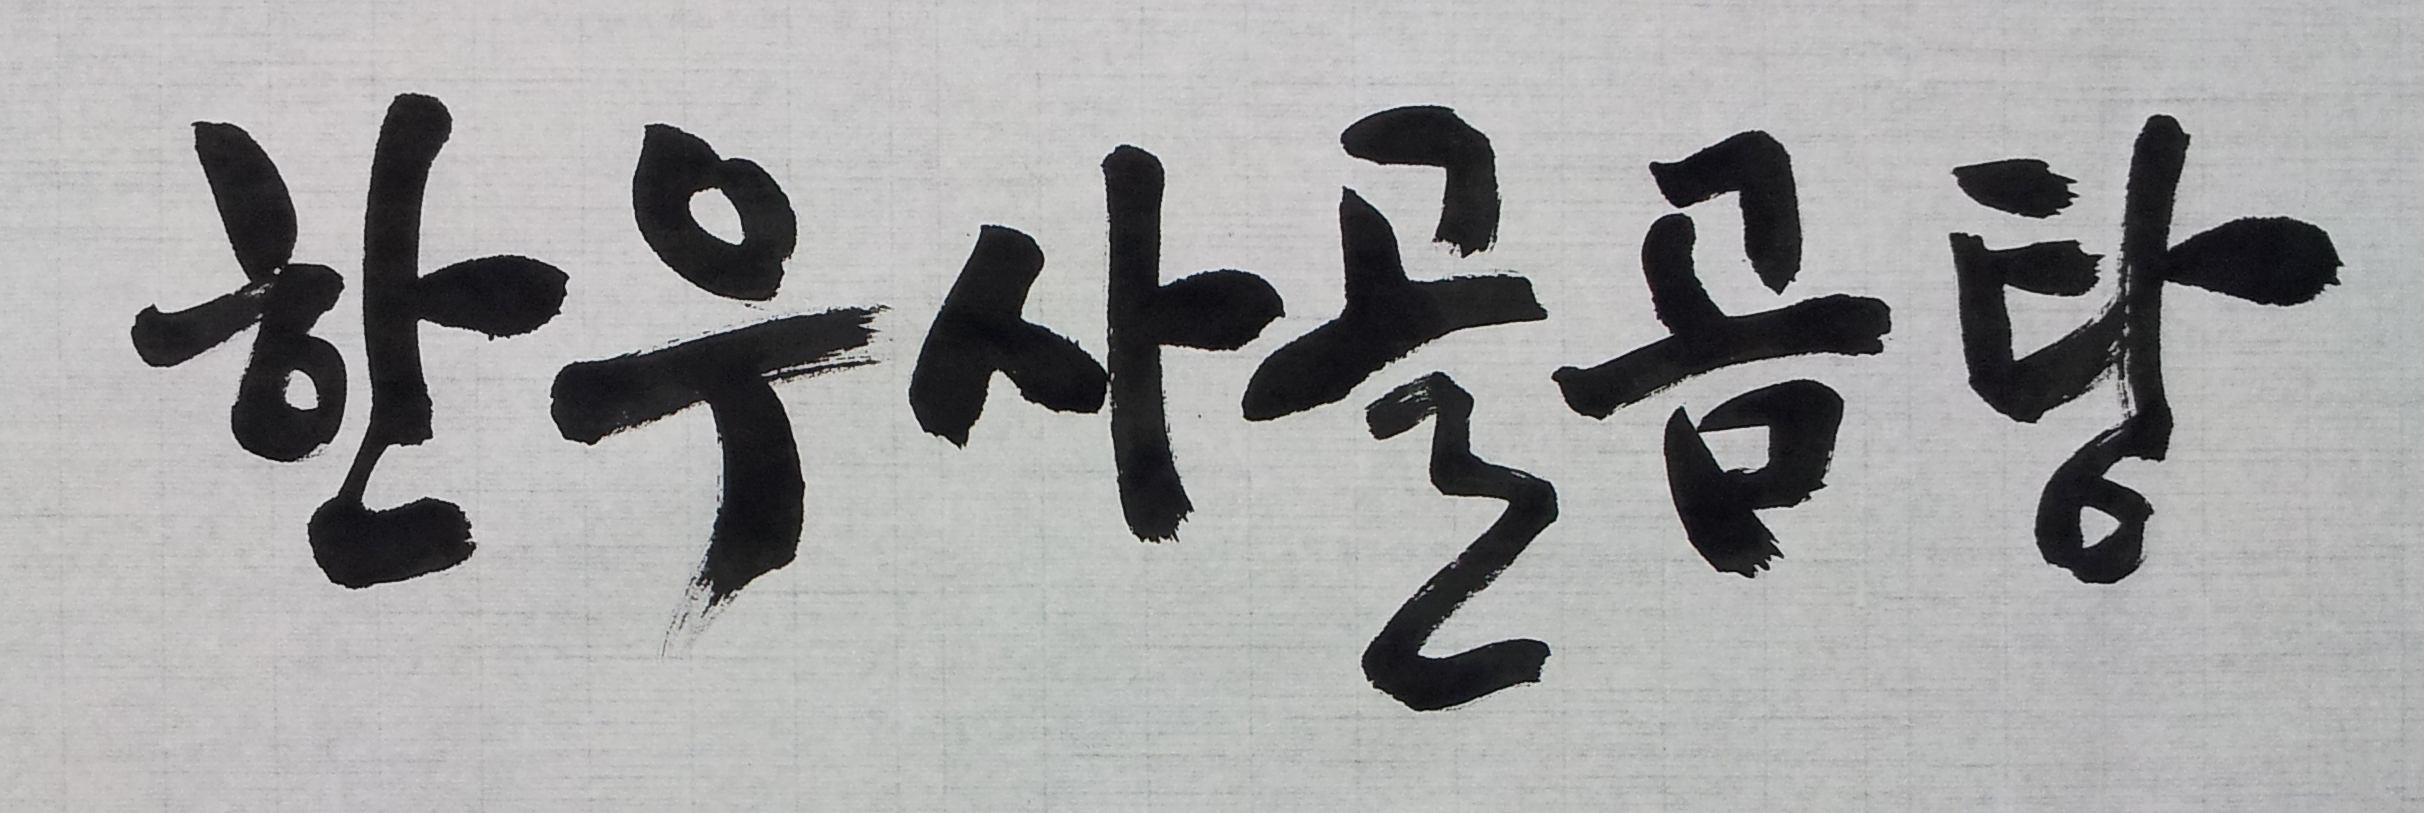 한우사골곰탕